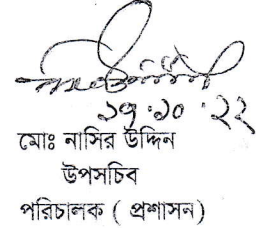 ১৭.১০.২২
মোঃ নাসির উদ্দিন
উপসচিব
পরিচালক ( প্রশাসন)